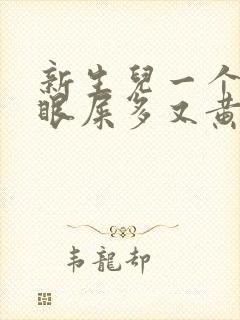 新生兒一个
眼屎多又黄
韦龍却